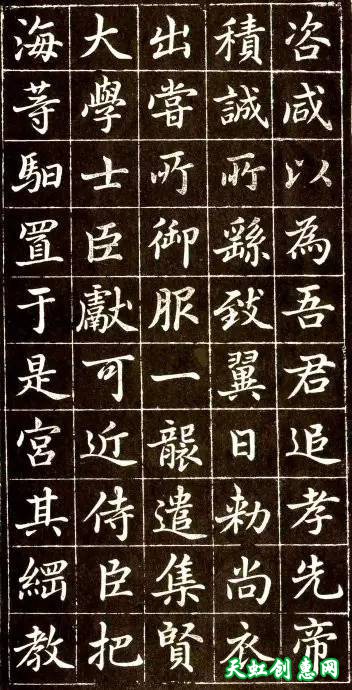 咨咸以為吾君追孝先帝
積誠所繇致翼日勑尚衣
出嘗所御服一襲遣集賢
大學士臣獻可近侍臣把
海等馹置于是宮其綱教
天虹创惠网